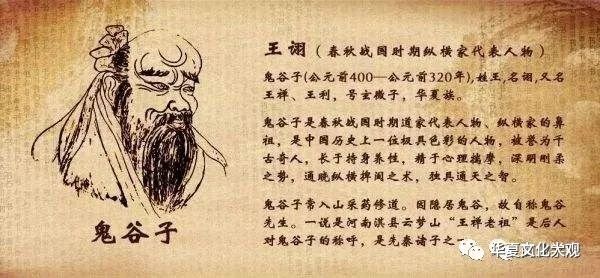 王诩（春秋战国时期纵横家代表人物）
鬼谷子(公元前400—公元前320年),姓王,名诩,又名
王禅、王利，号玄微子，华夏族。
鬼谷子是春秋战国时期道家代表人物、纵横家的鼻
祖，是中国历史上一位极具色彩的人物，被誉为千
古奇人，长于持身养性，精于心理揣摩，深明刚柔
之势，通晓纵横捭阖之术，独具通天之智。
鬼谷子常入山采药修道。因隐居鬼谷，故自称鬼谷
先生。一说是河南淇县云梦山“王禅老祖”是后人
对鬼谷子的称呼，是先秦诸子之
鬼谷子
华夏文化大观